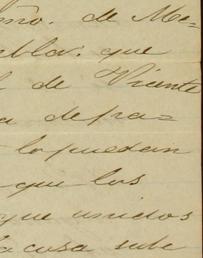 ño. de Me=
ebla: que
l de Vicente
a depra=
lo puedan
que los
que unidos
la cosa sube